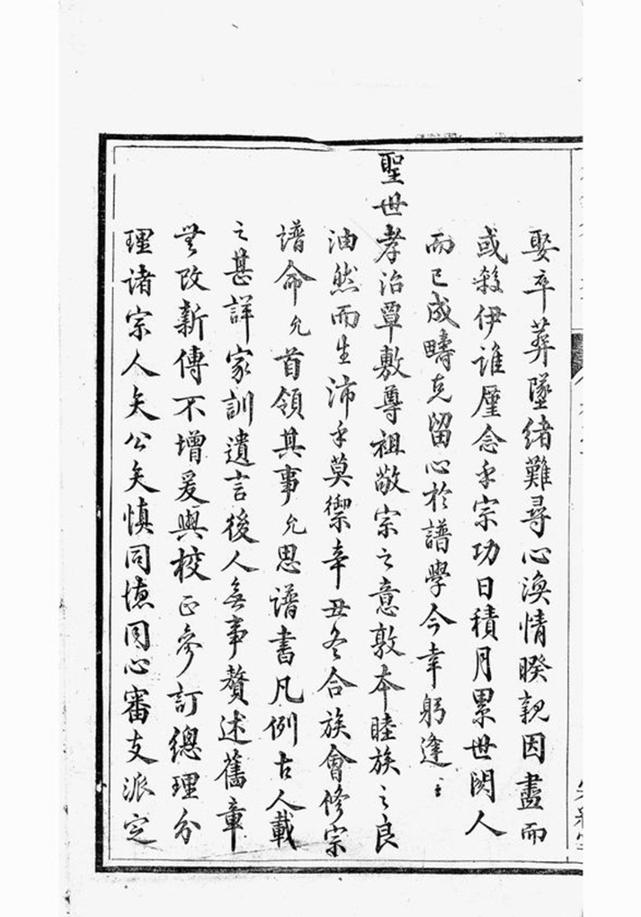 娶卒葬墜緒難尋心渙情暌親因盡而
或殺伊誰廑念乎宗功日積月累世閱人
而已成疇克留心於譜學今幸躬逢
聖世孝治覃敷尊祖敬宗之意敦本睦族之良
油然而生沛乎莫禦辛丑冬合族會修宗
譜命允首領其事允思譜書凡例古人載
之甚詳家訓遺言後人無事贅述舊章
無改新傳不增爰與校正參訂總理分
理諸宗人矢公矢慎同德同心審支派定